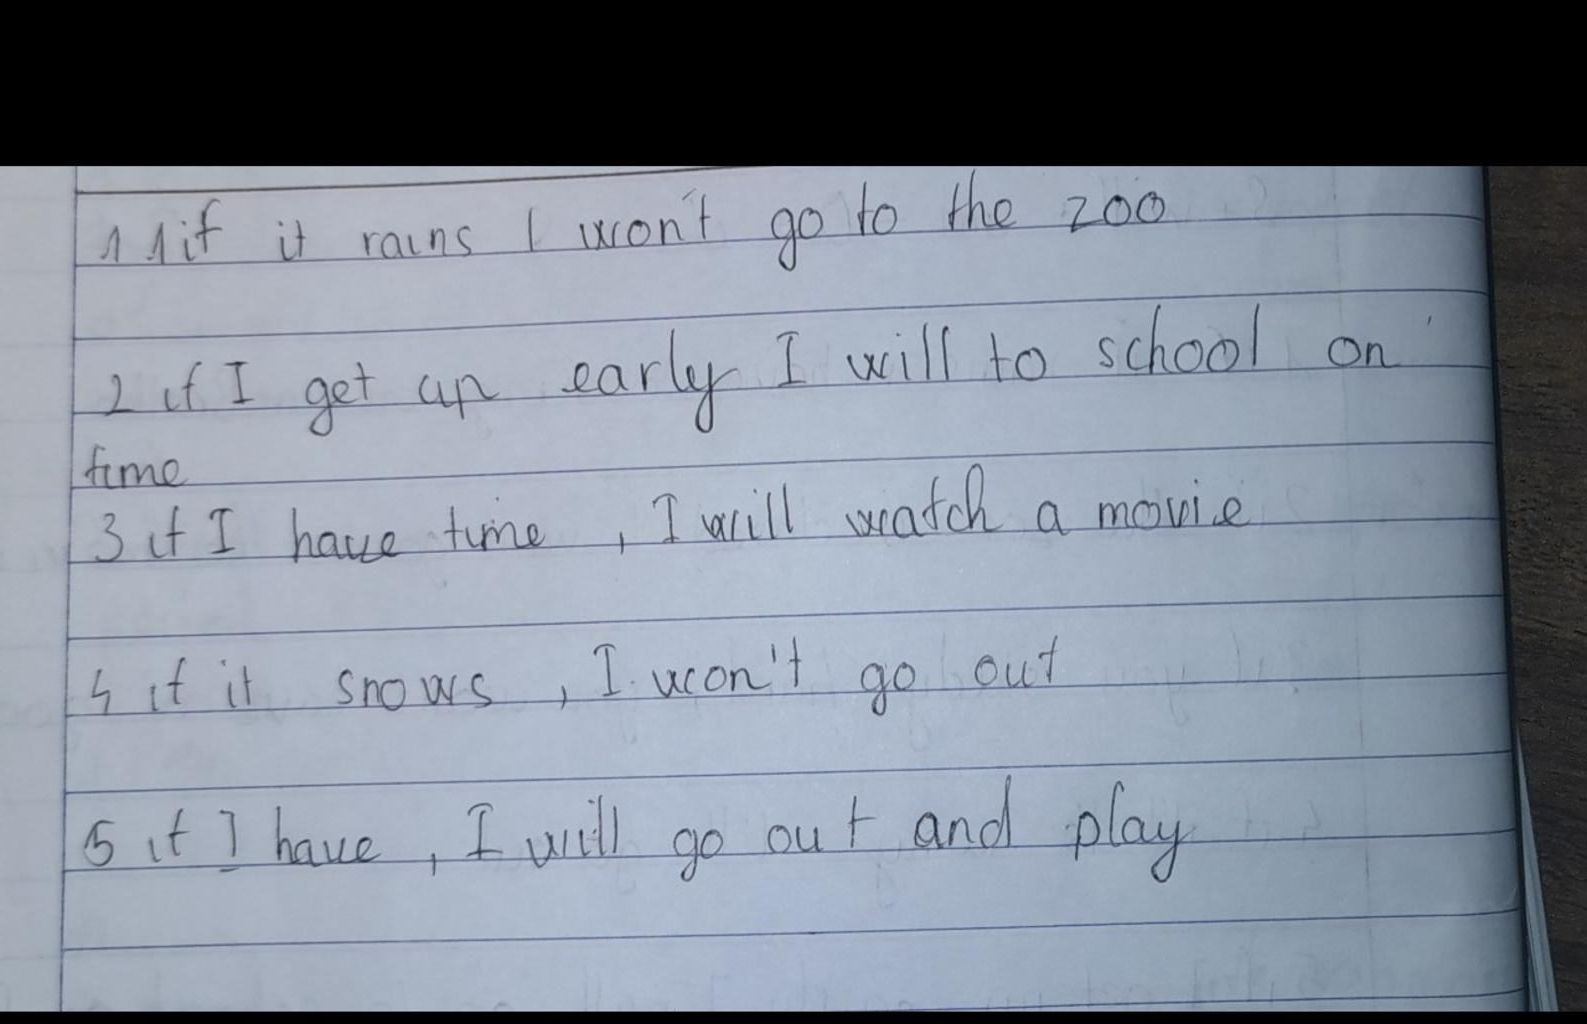 1 1 if it rains I won't go to the zoo
2 if I get up early I will to school on
time
3 if I have time , I will watch a movie
4 if it snows , I won't go out
5 if I have , I will go out and play